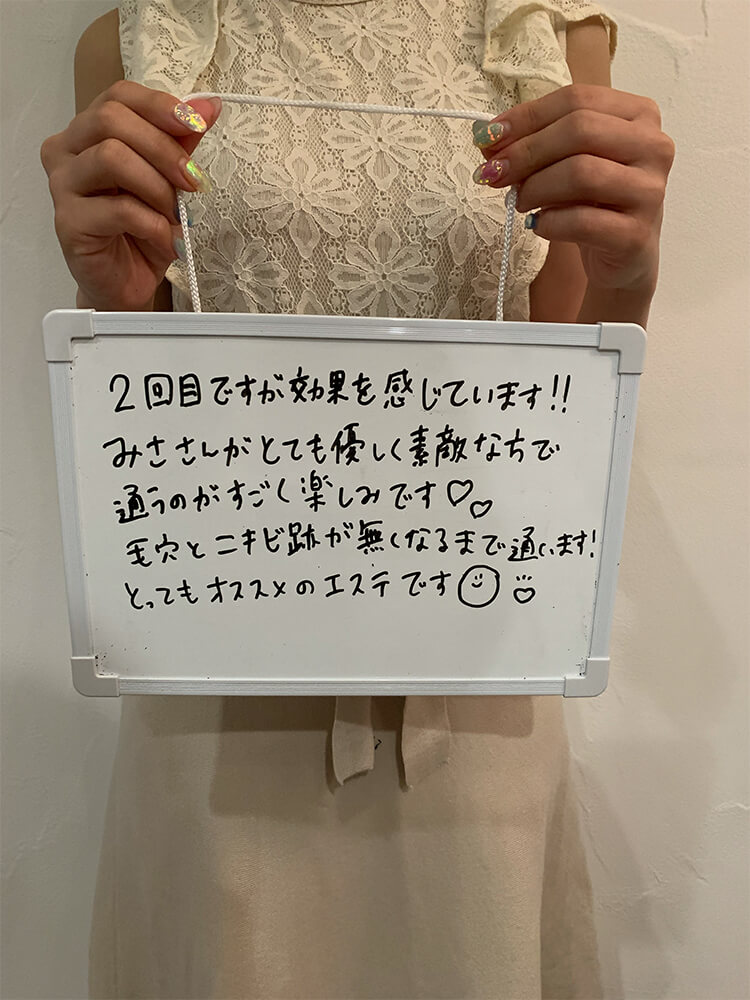 2回目ですが効果を感じています!!
みささんがとても優しく素敵な方で
通うのがすごく楽しみです♡♡
毛穴とニキビ跡が無くなるまで通います!
とってもオススメのエステです☺♡